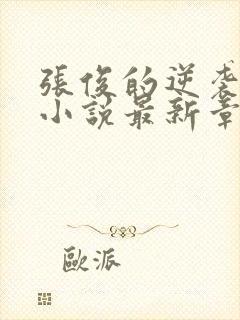 張俊的逆袭
小說最新章
歐派